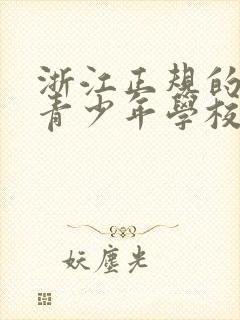 浙江正规的
青少年學校
妖塵光